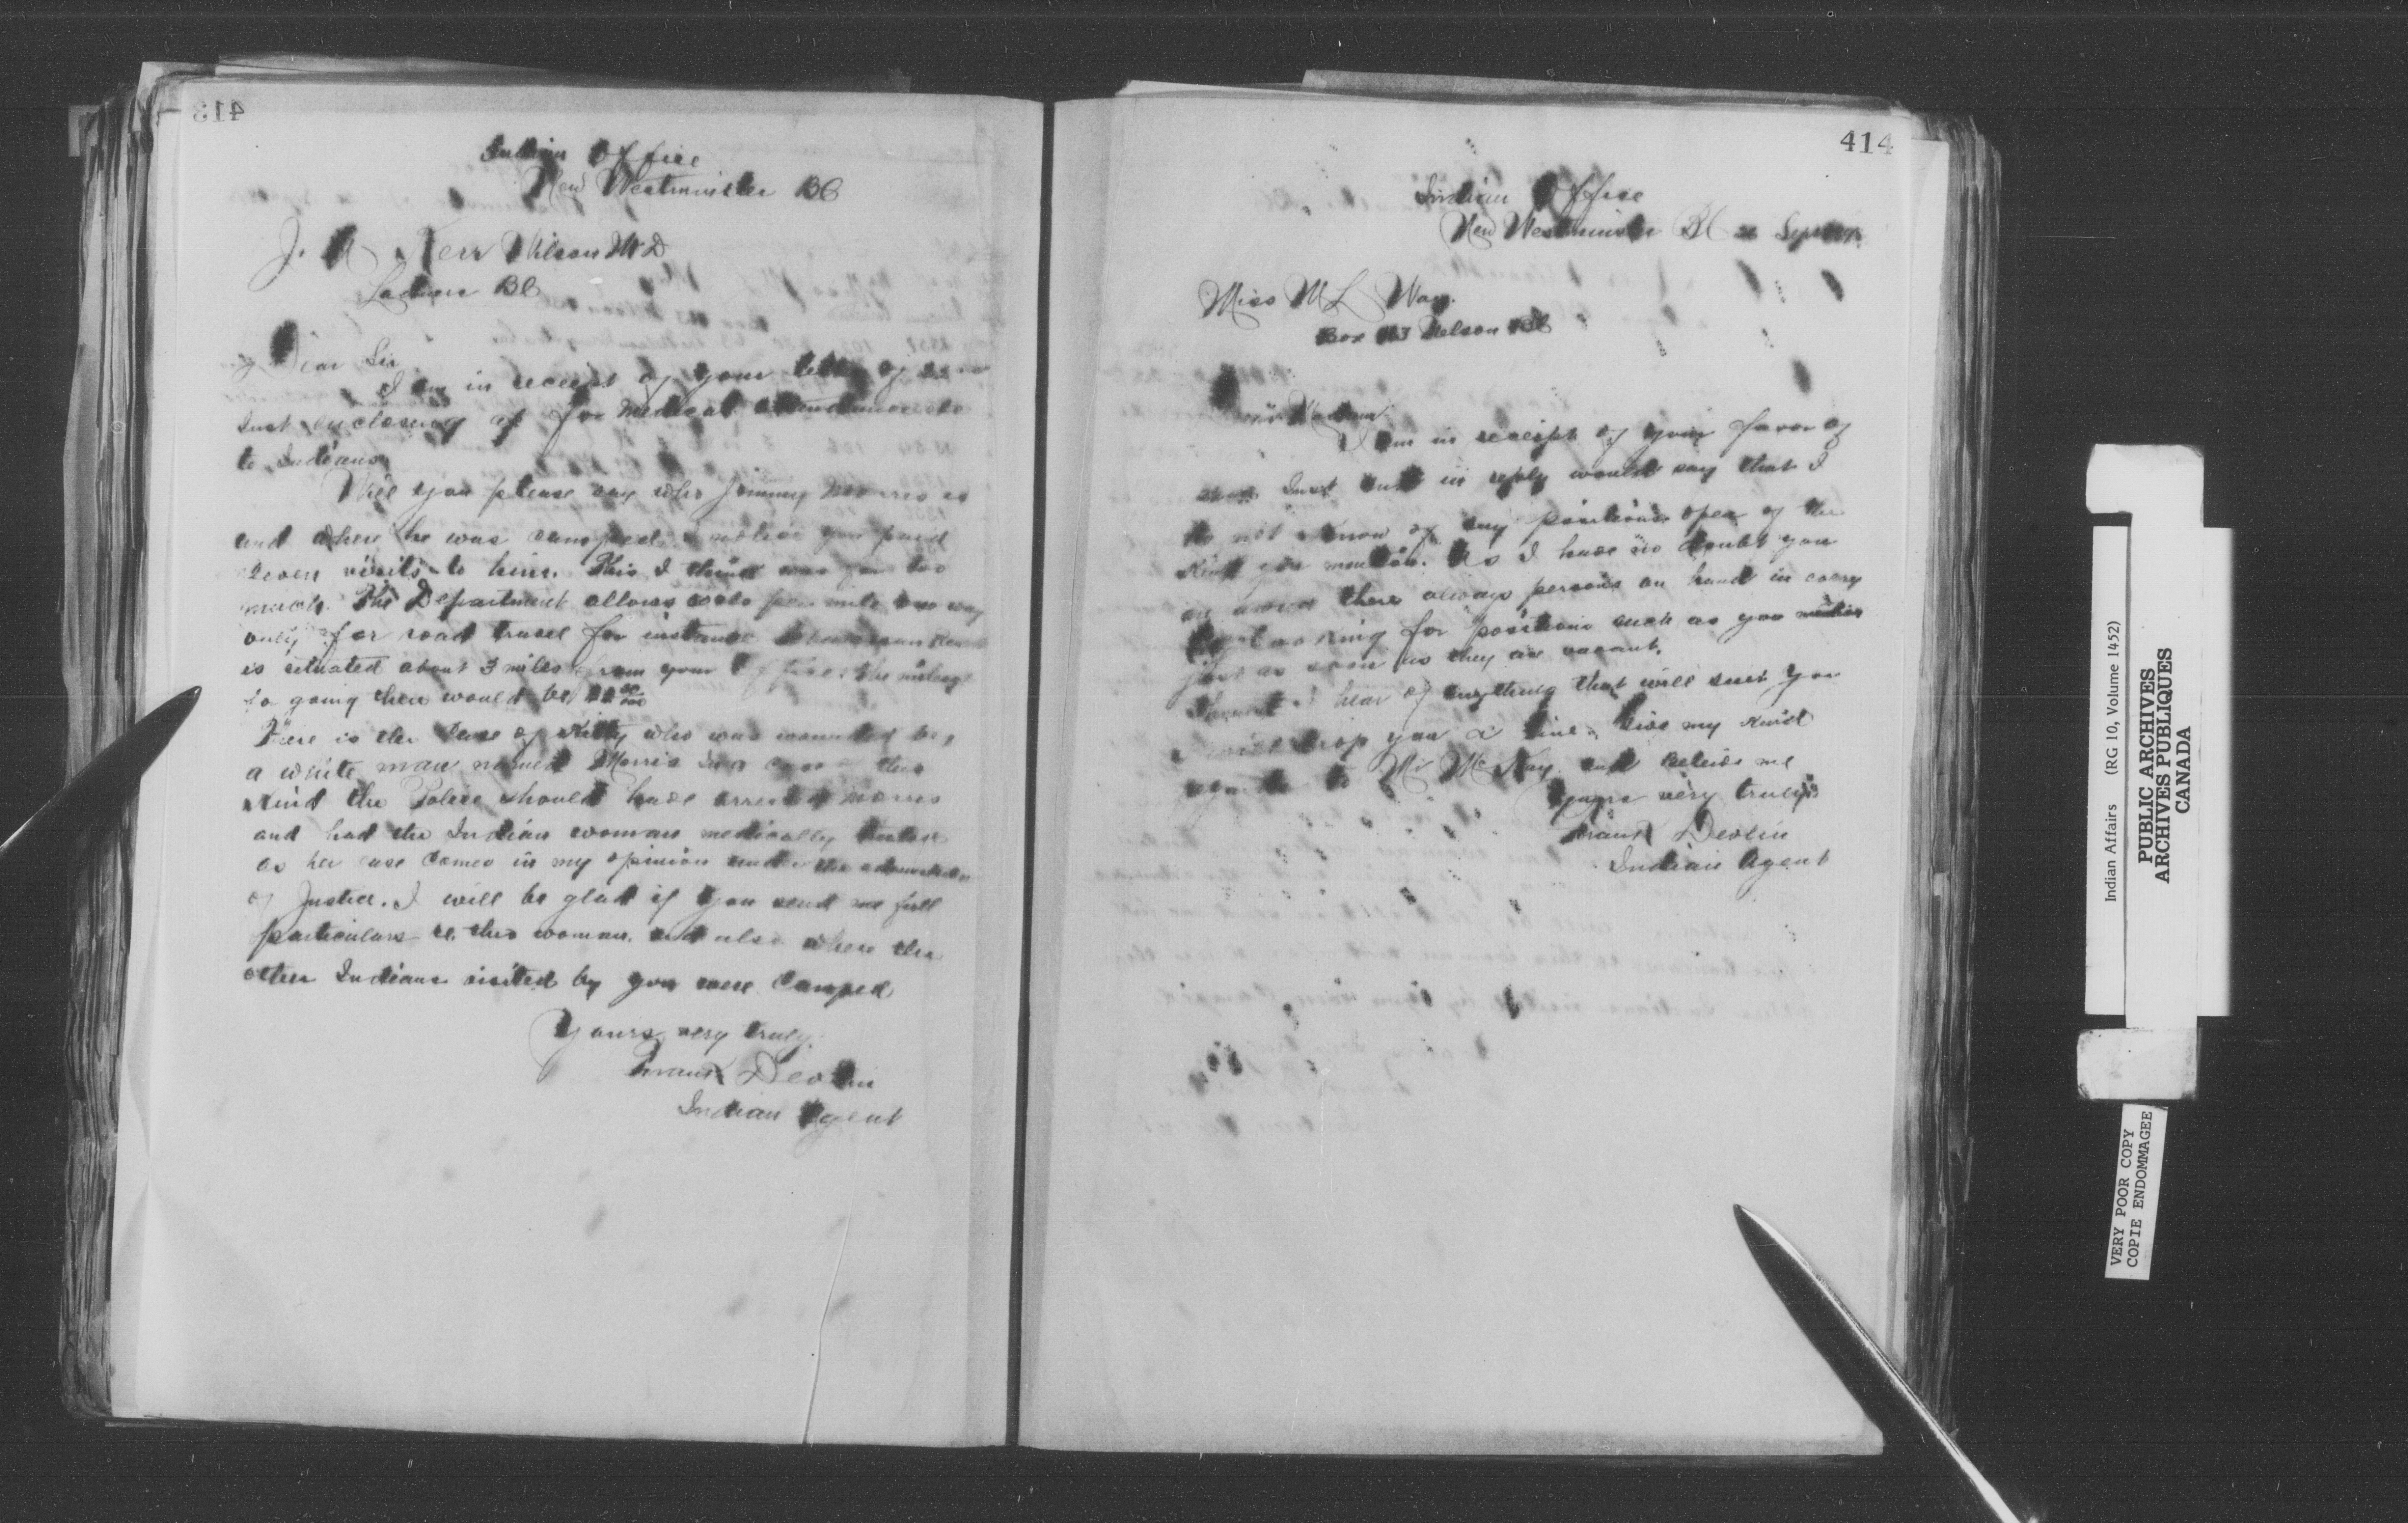 413
Indian Office
New Westminster BC
J. Kerr Wilson MD
Ladner BC
Dear Sir
I am in receipt of your letter of
Inst enclosing a/c for Medical attendance
to Indians
Will you please say who Jimmy Morris is
and where he was camped. I notice you paid
seven visits to him. This I think was far too
much. The Department allows per mile one way
only for road travel for instance
is situated about 3 miles from your Office. The mileage
for going there would be
There is the case of Kitty who was wounded by
a white man named Morris in a case this
Kind the Police should have arrested Morris
and had the Indian woman medically
as her case comes in my opinion under the
of Justice. I will be glad if you send me full
particulars re. this woman. and also where the
other Indians visited by you were Camped
Yours very truly.
Frank Devlin
Indian Agent
414
Indian Office
New Westminster BC Sept
Miss M L Way.
Box Nelson BC
Madam
I am in receipt of your favor of
Inst and in reply would say that I
do not know of any positions open of the
Kind you mention. As I have no doubt you
are aware there always persons on hand in every
looking for positions such as you mention
just as soon as they are vacant.
I hear of anything that will suit you
I will drop you a line. Give my kind
regards to Mr McKay and believe me
Yours very truly
Frank Devlin
Indian Agent
Indian Affairs (RG 10, Volume 1452)
PUBLIC ARCHIVES
ARCHIVES PUBLIQUES
CANADA
VERY POOR COPY
COPIE ENDOMMAGEE